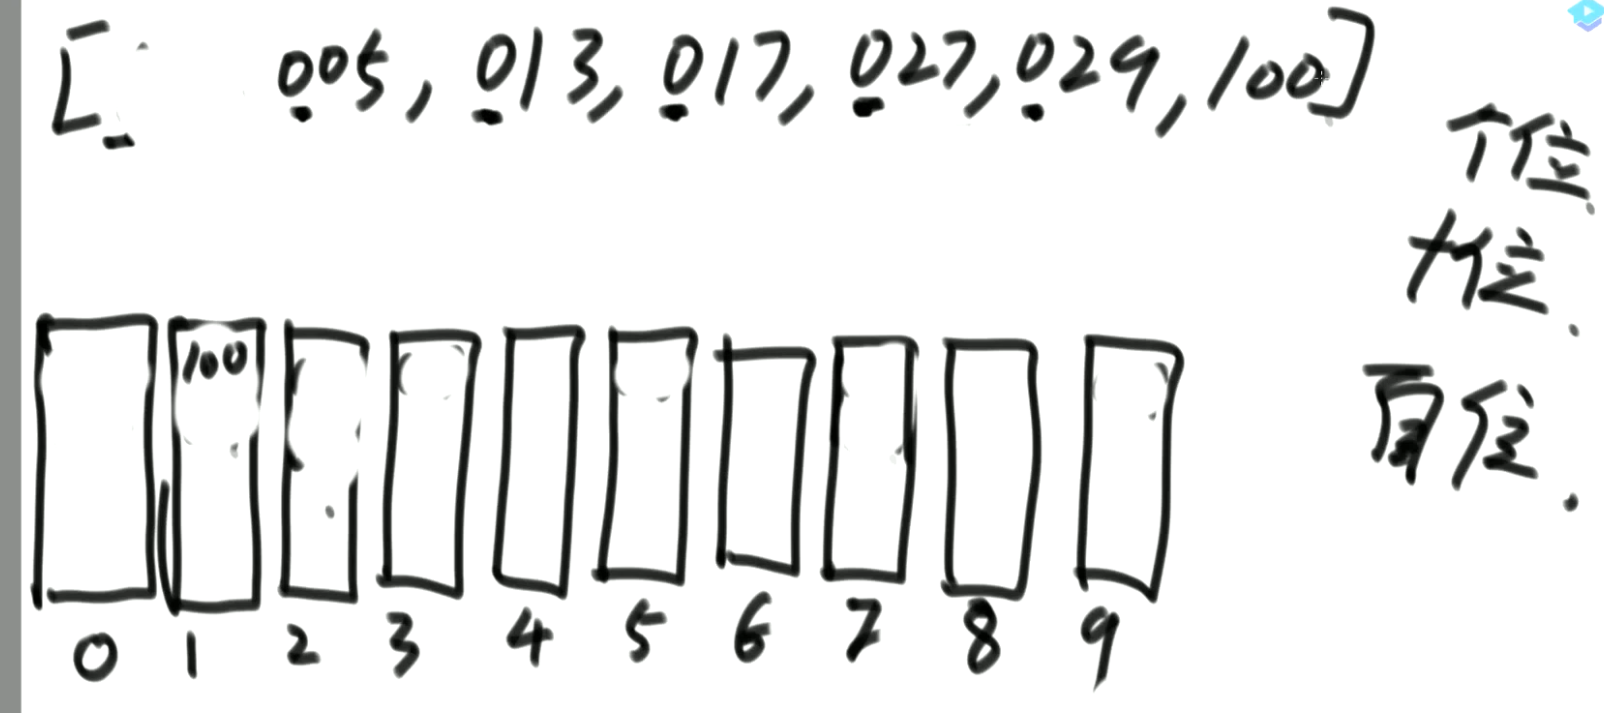 [ 005, 013, 017, 027, 029, 100]
个位.
十位.
百位.
100
0 1 2 3 4 5 6 7 8 9